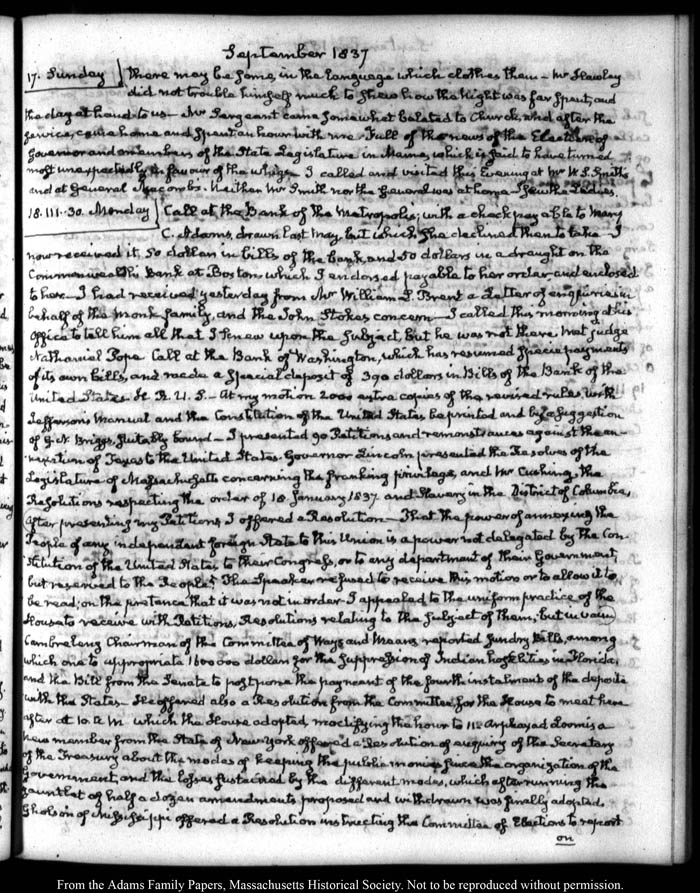 September 1837
17. Sunday There may be some, in the language which clothes them — Mr Hawley
did not trouble himself much to shew how the night was far spent, and
the day at hand to us — Mr Sergeant came somewhat belated to Church, and after the
service, came home and spent an hour with me. Full of the news of the Election of
Governor and members of the State Legislature in Maine, which is said to have turned
most unexpectedly in favour of the whigs — I called and visited this Evening at Mr W. S. Smith's
and at General Macomb's. Neither Mr Smith nor the General was at home — Saw the Ladies.
18. III. 30. Monday Call at the Bank of the Metropolis; with a check payable to Mary
C. Adams, drawn last May, but which she declined then to take — I
now received it, 50 dollars in bills of the bank, and 50 dollars in a draught on the
Commonwealth Bank at Boston, which I endorsed payable to her order and enclosed
to her — I had received yesterday from Mr William L. Brent a Letter of enquiries in
behalf of the Monk family, and the John Stokes concern — I called this morning at his
Office to tell him all that I knew upon the subject, but he was not there. Met Judge
Nathaniel Pope. Call at the Bank of Washington, which has resumed specie payments
of its own bills, and made a special deposit of 390 dollars in Bills of the Bank of the
United States. H. R. U. S. — At my motion 2000 extra copies of the revised rules, with
Jefferson's Manual and the Constitution of the United States be printed and by a suggestion
of G. N. Briggs, suitably bound — I presented 90 Petitions and remonstrances against the an-
nexation of Texas to the United States. Governor Lincoln presented the Resolves of the
Legislature of Massachusetts concerning the franking privilege, and Mr Cushing, the
Resolutions respecting the order of 18. January 1837. and Slavery in the District of Columbia,
After presenting my Petitions, I offered a Resolution — That the power of annexing the
People of any independent foreign State to this Union is a power not delegated by the Con-
stitution of the United States, to their Congress, or to any department of their Government,
but reserved to the People. The Speaker refused to receive this motion or to allow it to
be read; on the pretence that it was not in order. I appealed to the uniform practice of the
House to receive with Petitions, Resolutions relating to the subject of them; but in vain
Cambreleng Chairman of the Committee of Ways and Means reported sundry Bills, among
which one to appropriate 1600000 dollars for the suppression of Indian hostilities in Florida,
and the Bill from the Senate to postpone the payment of the fourth instalment of the deposite
with the States. He offered also a Resolution from the Committee, for the House to meet here
after at 10. A. M. which the House adopted, modifying the hour to 11. Arphaxad Loomis a
new member from the State of New York offered a Resolution of enquiry of the Secretary
of the Treasury about the modes of keeping the public monies since the organization of the
Government, and the losses sustained by the different modes, which after running the
gauntlet of half a dozen amendments proposed and withdrawn was finally adopted.
Gholson of Mississippi offered a Resolution instructing the Committee of Elections to report
on
From the Adams Family Papers, Massachusetts Historical Society. Not to be reproduced without permission.